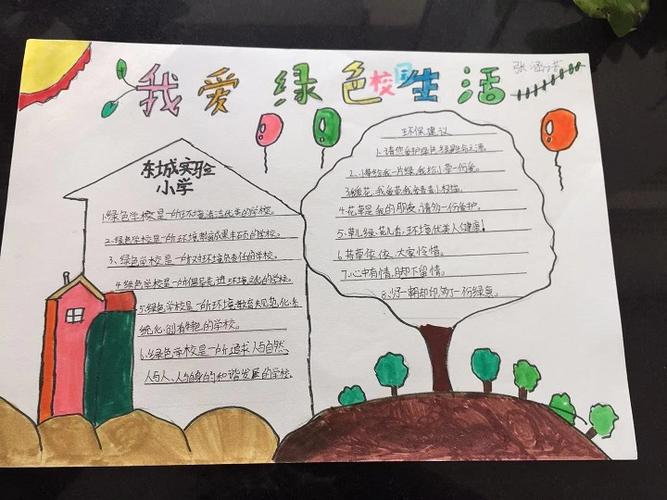 我爱绿色校园生活
张
东城实验
小学
1.绿色学校是一所环境清洁优美的学校。
2.绿色学校是一所环境教育成果丰硕的学校。
3、绿色学校是一所对环境负责任的学校。
4.绿色学校是一所倡导先进环境文化的学校。
5.绿色学校是一所环境教育规范化、系
统化、创有特色的学校。
6.绿色学校是一所追求人与自然、
人与人、人与身的和谐发展的学校。
环保建议
1.请您爱护绿色
2.得给我一片绿,我给你一份爱。
4.花草是我的朋友,请勿一份爱护。
5.草儿绿,花儿香,环境优美人健康!
6.芳草依依,大家怜惜。
7.心中有情,脚下留情。
8.少一朝却印,多一份绿意。